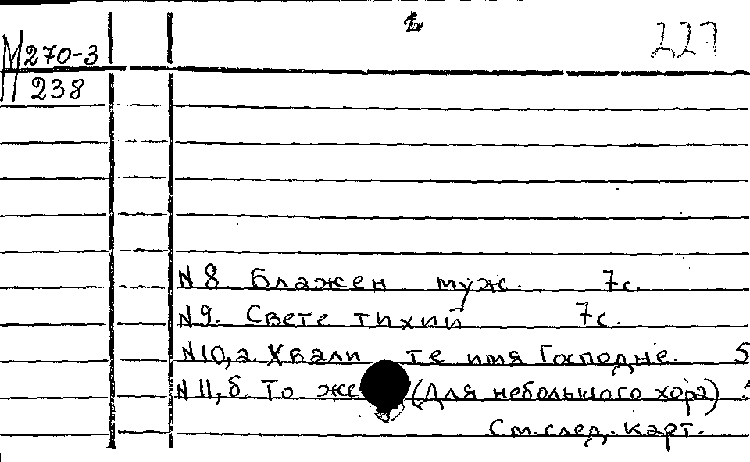 2
227
М270-3
238
N 8 Блажен муж. 7с.
N 9. Свете тихий 7с.
N 10,а. Хвали те имя Господне. 5
N 11,б. То же (Для небольшого хора)
См. след. карт.